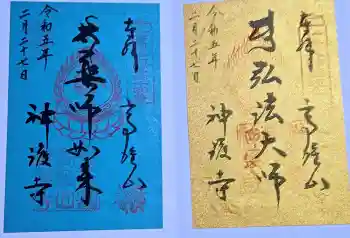 奉拝
高雄山
弘法大師
神護寺
令和五年
二月二十七日
奉拝
高雄山
薬師如来
神護寺
令和五年
二月二十七日